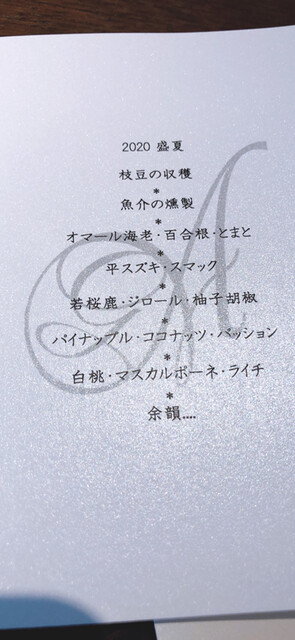 2020 盛夏
枝豆の収穫
*
魚介の燻製
*
オマール海老・百合根・とまと
*
平スズキ・スマック
*
若桜鹿・ジロール・柚子胡椒
*
パイナップル・ココナッツ・パッション
*
白桃・マスカルポーネ・ライチ
*
余韻....